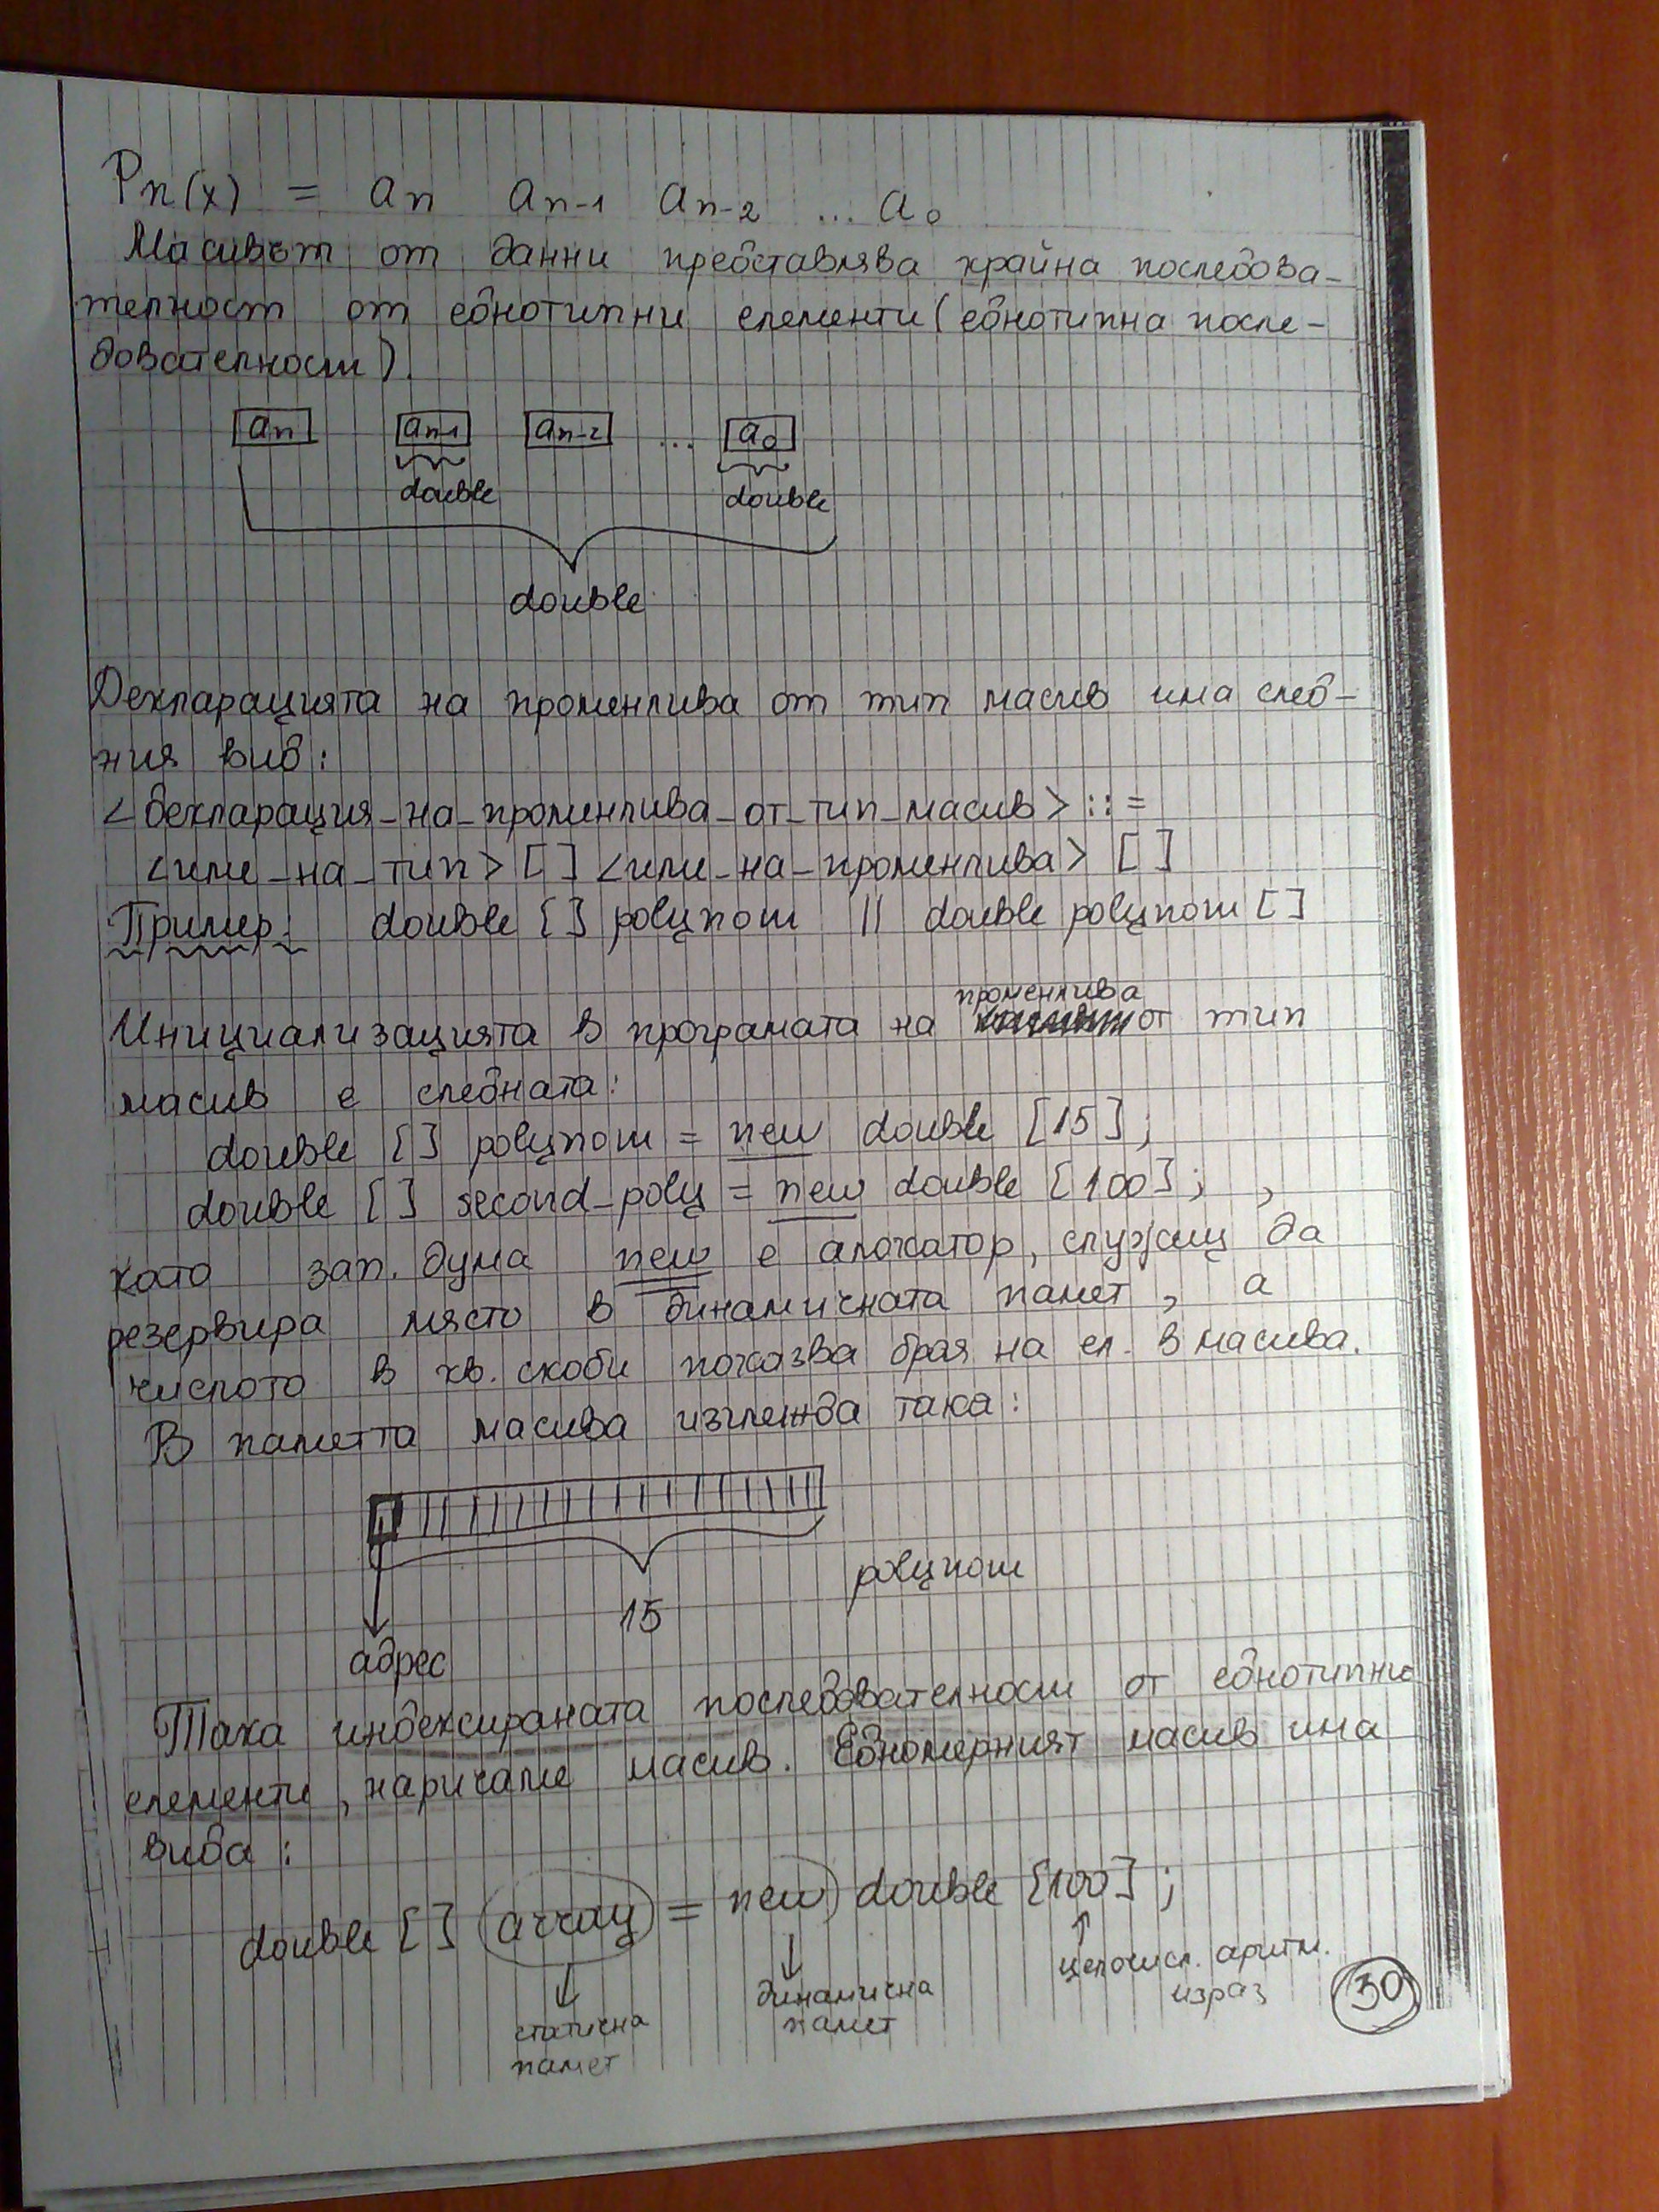 Pn(x) = an an-1 an-2 ... a0
Масивът от данни представлява крайна последова-
телност от еднотипни елементи (еднотипна после-
дователност).
an an-1 an-2 ... a0
double double
double
Декларацията на променлива от тип масив има след-
ния вид:
<декларация_на_променлива_от_тип_масив> ::=
<име_на_тип> [] <име_на_променлива> []
Пример: double [] polynom || double polynom []
променлива
Инициализацията в програмата на от тип
масив е следната:
double [] polynom = new double [15];
double [] second_poly = new double [100]; ,
като зап. дума new е алокатор, служещ да
резервира място в динамичната памет, а
числото в кв. скоби показва броя на ел. в масива.
В паметта масива изглежда така:
polynom
15
адрес
Така индексираната последователност от еднотипни
елементи, наричаме масив. Едномерният масив има
вида:
double [] array = new double [100];
статична памет
динамична памет
целочисл. аритм. израз
30